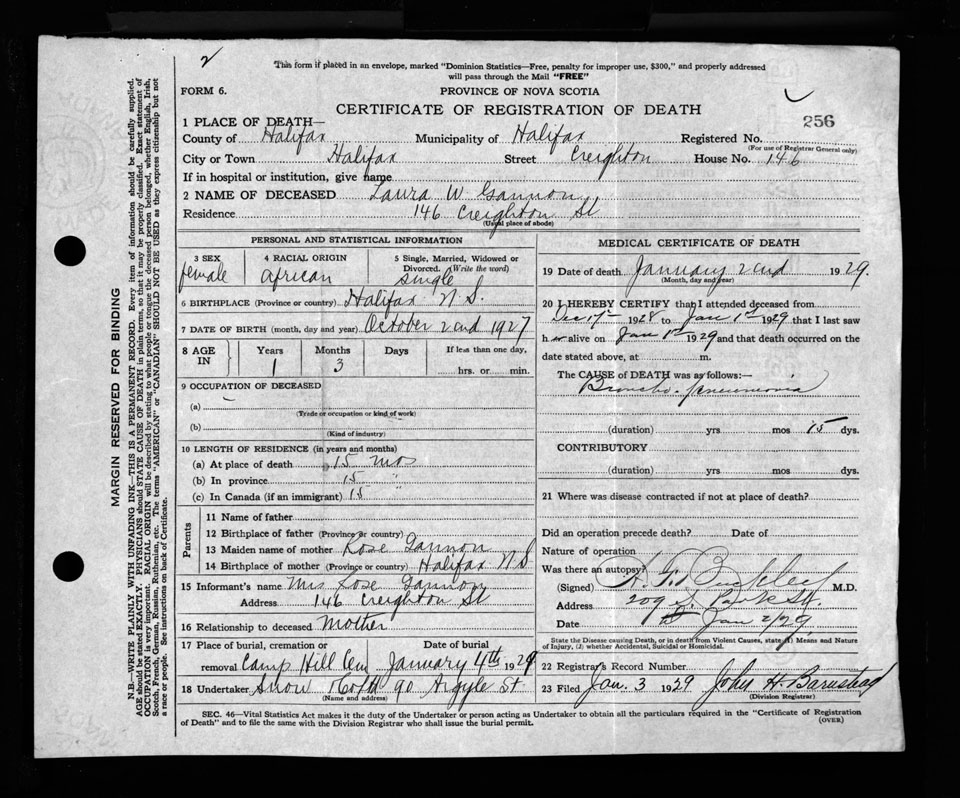 2
This form if placed in an envelope, marked "Dominion Statistics—Free, penalty for improper use, $300," and properly addressed
will pass through the Mail "FREE"
FORM 6.
PROVINCE OF NOVA SCOTIA
CERTIFICATE OF REGISTRATION OF DEATH
256
1 PLACE OF DEATH—
County of Halifax Municipality of Halifax Registered No.
(For use of Registrar General only)
City or Town Halifax Street Creighton House No. 146
If in hospital or institution, give name
2 NAME OF DECEASED Laura W. Gannon
Residence 146 Creighton St
(Usual place of abode)
PERSONAL AND STATISTICAL INFORMATION
3 SEX female
4 RACIAL ORIGIN african
5 Single, Married, Widowed or Divorced. (Write the word) Single
6 BIRTHPLACE (Province or country) Halifax N.S.
7 DATE OF BIRTH (month, day and year) October 2nd 1927
8 AGE IN Years Months Days If less than one day,
1 3 hrs. or min.
9 OCCUPATION OF DECEASED
(a)
(Trade or occupation or kind of work)
(b)
(Kind of industry)
10 LENGTH OF RESIDENCE (in years and months)
(a) At place of death 15 mos
(b) In province 15 "
(c) In Canada (if an immigrant) 15
Parents
11 Name of father
12 Birthplace of father (Province or country)
13 Maiden name of mother Rose Gannon
14 Birthplace of mother (Province or country) Halifax N.S
15 Informant's name Mrs Rose Gannon
Address 146 Creighton St
16 Relationship to deceased Mother
17 Place of burial, cremation or removal Camp Hill Cem Date of burial January 4th 1929
18 Undertaker Snow 90 Argyle St
(Name and address)
MEDICAL CERTIFICATE OF DEATH
19 Date of death January 2nd 1929
(Month, day and year)
20 I HEREBY CERTIFY that I attended deceased from
Dec 17th 1928 to Jan 1st 1929 that I last saw
h er alive on Jan 1st 1929 and that death occurred on the
date stated above, at m.
The CAUSE of DEATH was as follows:—
Broncho-pneumonia
(duration) yrs mos 15 dys.
CONTRIBUTORY
(duration) yrs. mos dys.
21 Where was disease contracted if not at place of death?
Did an operation precede death? Date of
Nature of operation
Was there an autopsy?
(Signed) Buckley M.D.
Address 209 S. Park St.
Date Jan 2/29
State the Disease causing Death, or in death from Violent Causes, state (1) Means and Nature
of Injury, (2) whether Accidental, Suicidal or Homicidal.
22 Registrar's Record Number
23 Filed Jan. 3 1929 John H. Barnstead
(Division Registrar)
SEC. 46—Vital Statistics Act makes it the duty of the Undertaker or person acting as Undertaker to obtain all the particulars required in the "Certificate of Registration
of Death" and to file the same with the Division Registrar who shall issue the burial permit.
(OVER)
MARGIN RESERVED FOR BINDING
N.B.—WRITE PLAINLY WITH UNFADING INK—THIS IS A PERMANENT RECORD. Every item of information should be carefully supplied.
AGE should be stated EXACTLY. PHYSICIANS should STATE CAUSE OF DEATH in plain terms, so that it may be properly classified. Exact statement of
OCCUPATION is very important. RACIAL ORIGIN will be described by stating to what people or tongue the deceased person belonged, whether English, Irish,
Scotch, French, German, Russian, Ruthenian, etc. The terms "AMERICAN" or "CANADIAN" SHOULD NOT BE USED as they express citizenship but not
a race or people. See instructions on back of Certificate.